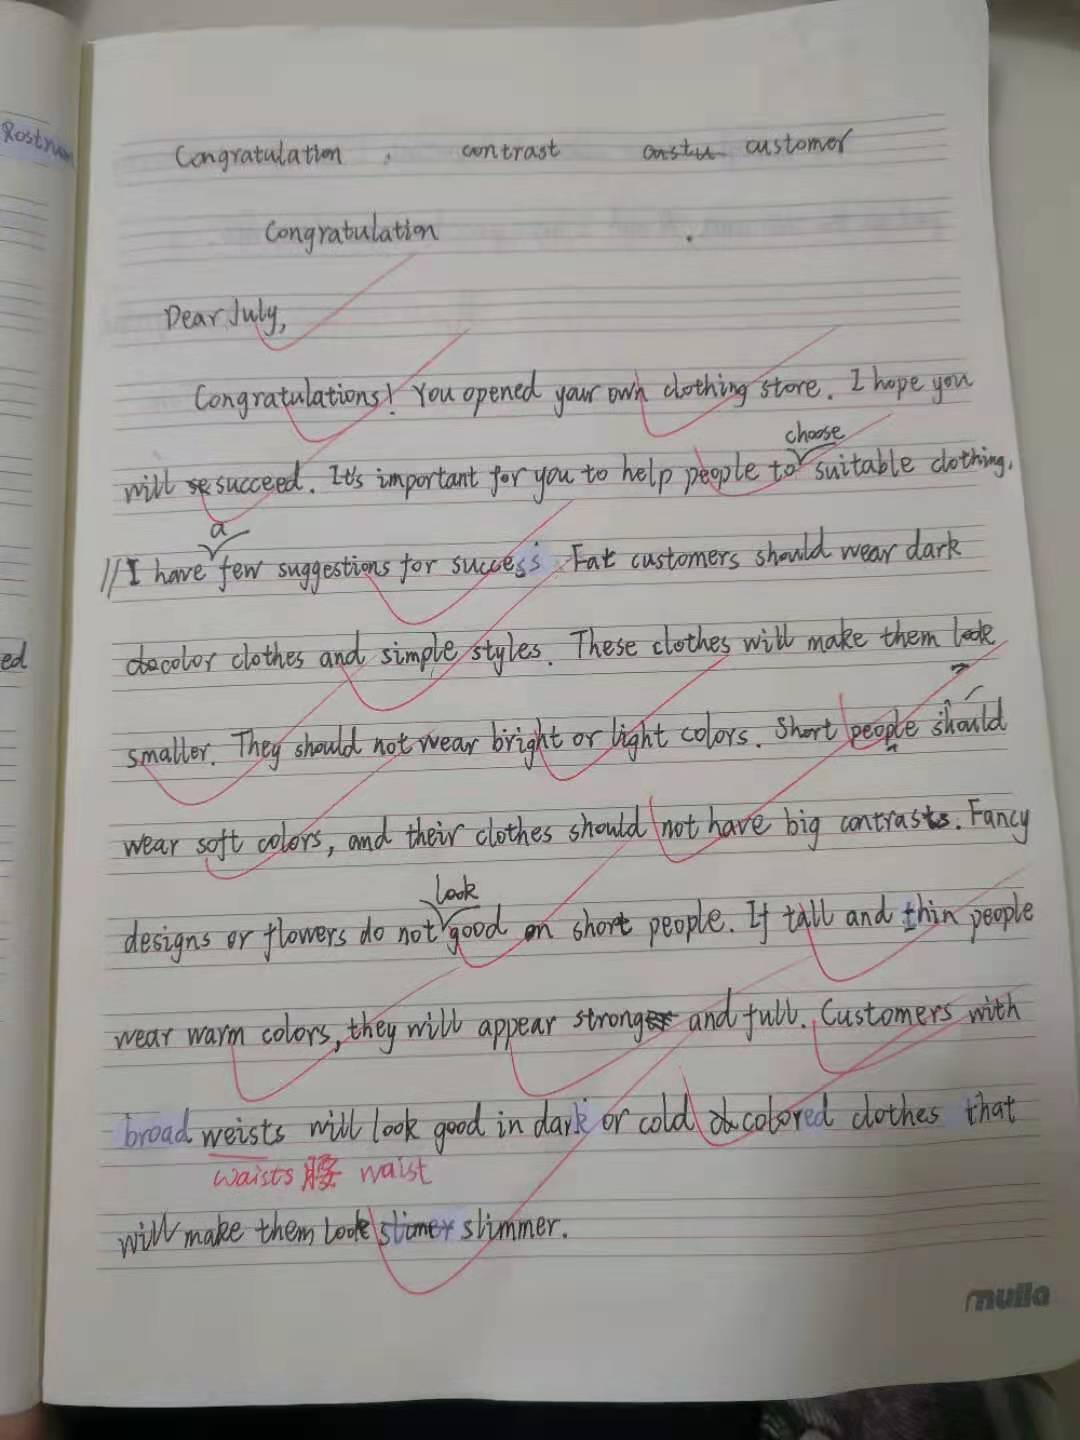 Rostrum
Congratulation , contrast custu customer
Congratulation .
Dear July,
Congratulations! You opened your own clothing store. I hope you
choose
will se succeed. It's important for you to help people to suitable clothing.
a
// I have few suggestions for success. Fat customers should wear dark
ed
do color clothes and simple styles. These clothes will make them look
smaller. They should not wear bright or light colors. Short people should
wear soft colors, and their clothes should not have big contrasts. Fancy
look
designs or flowers do not good on short people. If tall and thin people
wear warm colors, they will appear stronger and full. Customers with
broad weists will look good in dark or cold d colored clothes that
waists 腰 waist
will make them look slimer slimmer.
mulla